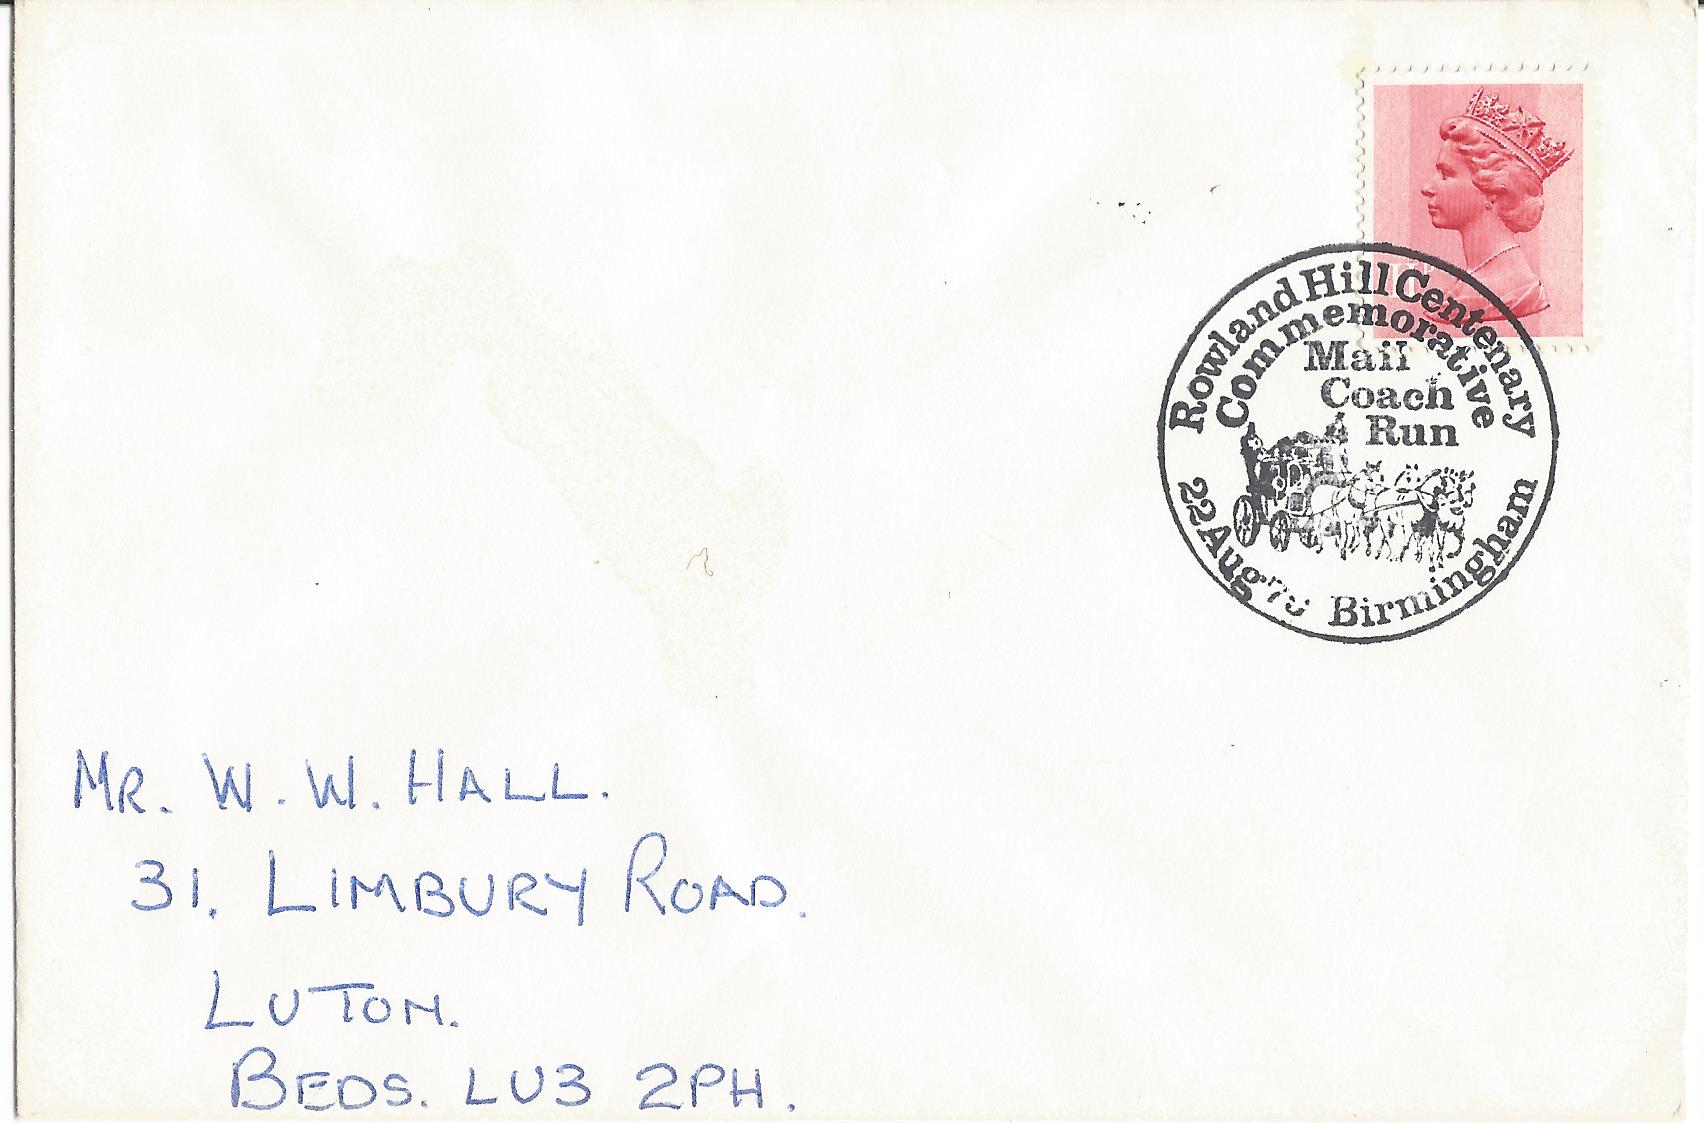 Rowland Hill Centenary
Commemorative
Mail
Coach
Run
22 Aug Birmingham
Mr. W. W. HALL.
31. LIMBURY ROAD.
LUTON.
BEDS. LU3 2PH.